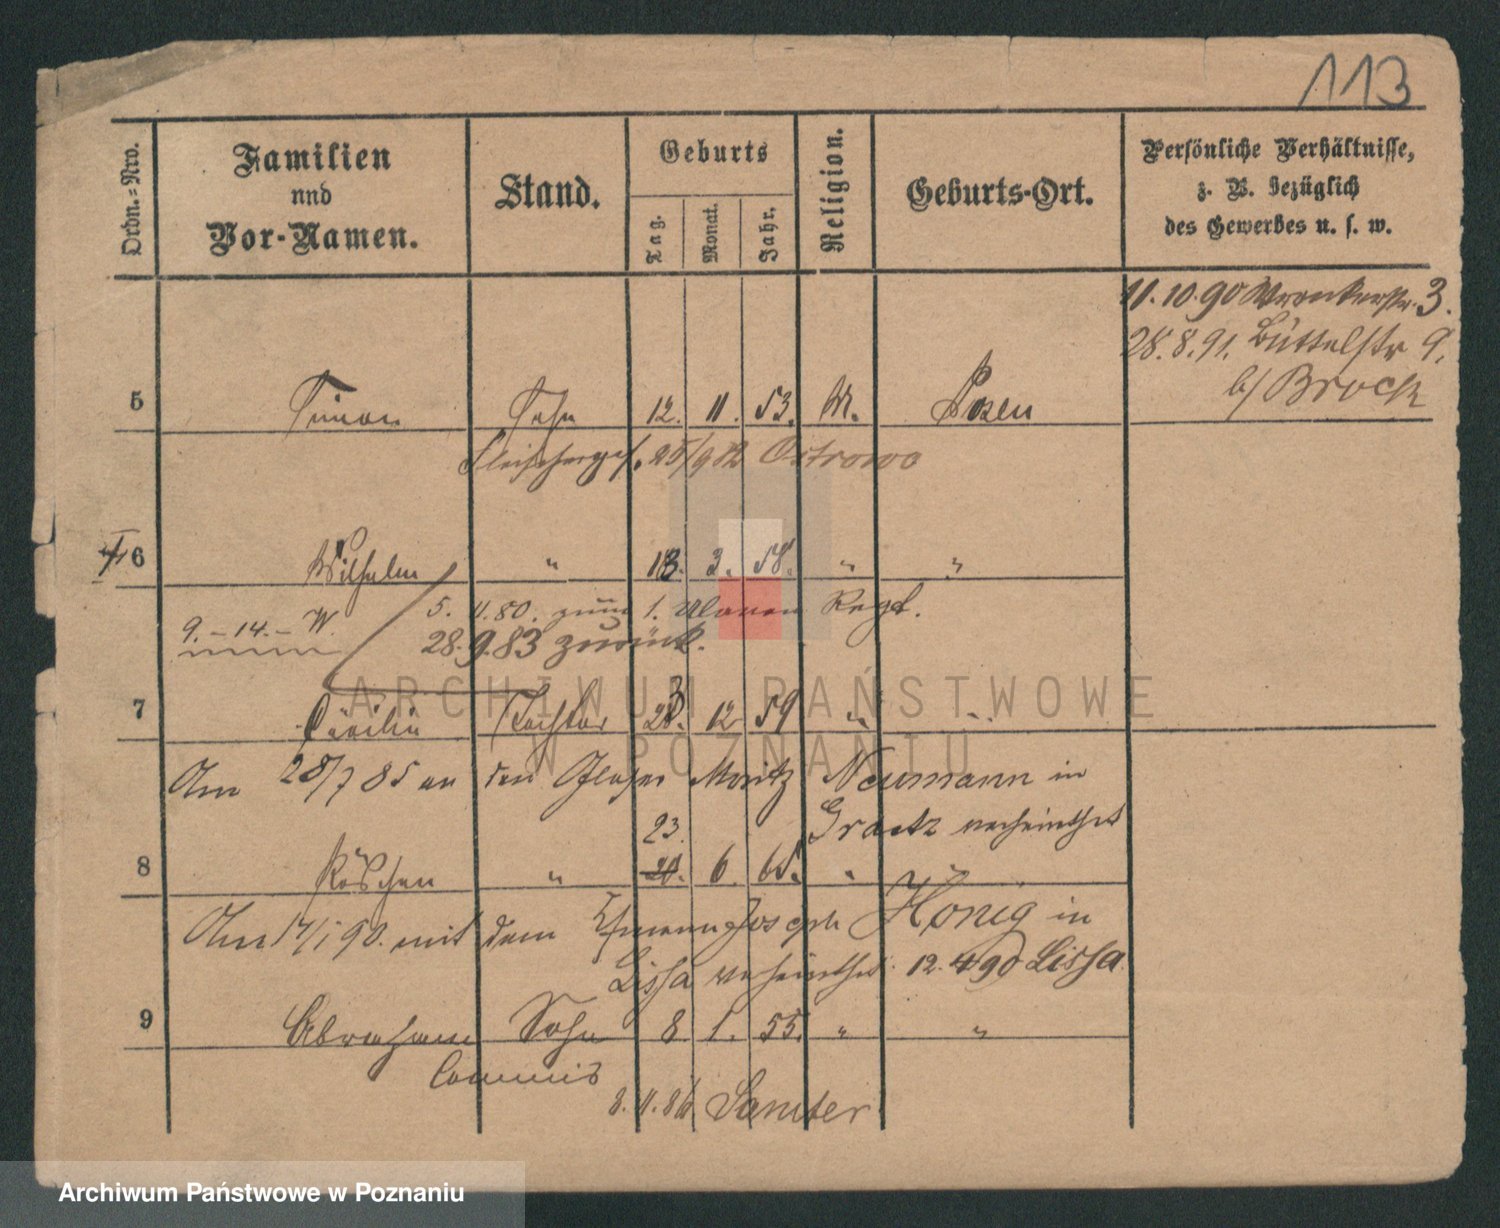 113
Ordn.-Nro.
Familien
und
Vor-Namen.
Stand.
Geburts
Tag.
Monat.
Jahr.
Religion.
Geburts-Ort.
Persönliche Verhältnisse,
z. B. bezüglich
des Gewerbes u. s. w.
11.10.90 Wronkerstr. 3.
28.8.91. Büttelstr 9.
b/ Brock
5 Simon Sohn 12. 11. 53. M. Posen
Fleischerges. 25/9 82 Ostrowo
6 Wilhelm " 18. 3. 58. " "
5. 11.80. zum 1. Ulanen Regt.
9. - 14. - W.
28.9.83 zurück.
7 Cäcilie Tochter 28. 12 59 " "
Am 28/7 85 an den Glaser Moritz Neumann in
Graetz verheirathet
23.
8 Röschen " 6. 65. "
Am 17/1 90. mit dem Joseph Honig in
Lissa verheirathet. 12.4 90 Lissa.
9 Abraham Sohn 8 1. 55. " "
Commis
8.11.86 Samter
ARCHIWUM PAŃSTWOWE
W POZNANIU
Archiwum Państwowe w Poznaniu